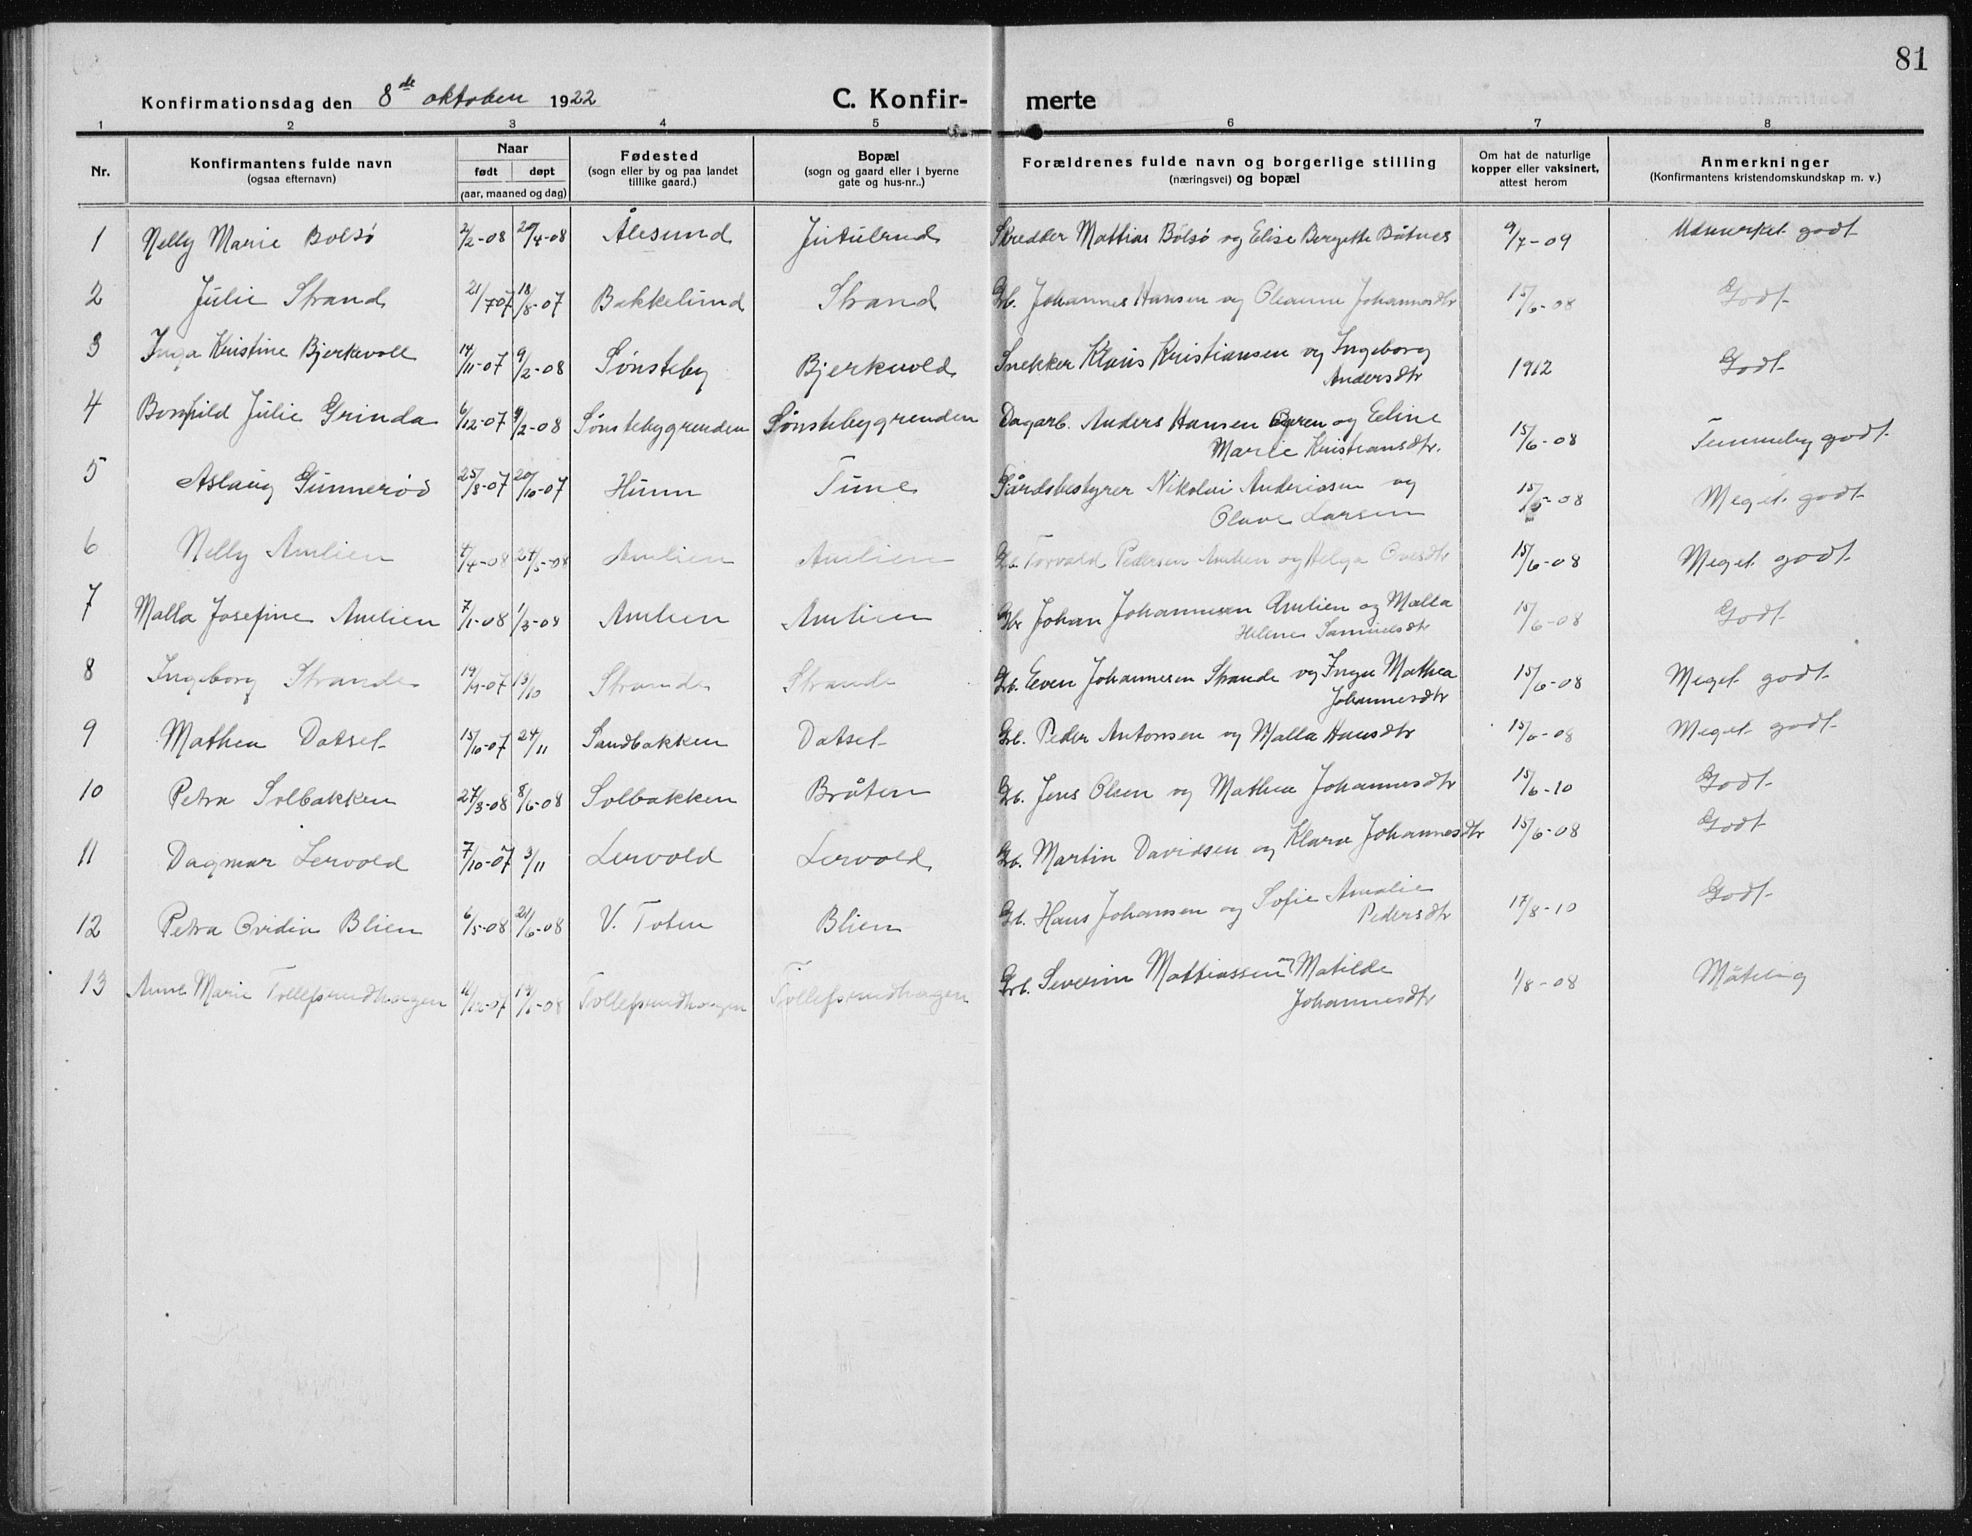 81
Konfirmationsdag den 8de oktober 1922 C. Konfir- merte
1 2 3 4 5 6 7 8
Nr. Konfirmantens fulde navn (ogsaa efternavn) Naar født døpt (aar, maaned og dag) Fødested (sogn eller by og paa landet tillike gaard.) Bopæl (sogn og gaard eller i byerne gate og hus-nr..) Forældrenes fulde navn og borgerlige stilling (næringsvei) og bopæl Om hat de naturlige kopper eller vaksinert, attest herom Anmerkninger (Konfirmantens kristendomskundskap m. v.)
1 Nelly Marie Bolsø 2/2-08 20/4-08 Ålesund Jutulrud Skredder Mattias Bolsø og Elise Bergette Båtnes 9/7-09 Udmerket godt
2 Julie Strand 21/7 07 18/8-07 Bakkelund Strand Gb. Johannes Hansen og Oleanna Johannesdtr 15/6-08 Godt
3 Inga Kristine Bjerkevoll 14/11-07 9/2-08 Sønsteby Bjerkvold Snekker Klaus Kristiansen og Ingeborg
Andersdtr 1912 Godt
4 Borghild Julie Grinda 6/12-07 9/2-08 Sønstebygrenden Sønstebygrenden Dagarb. Anders Hansen og Eeline
Marie Kristiansdtr. 15/6-08 Temmelig godt
5 Aslaug Gunnerød 25/8-07 20/10-07 Hunn Tune Gårdsbestyrer Nikolai Anderssen og
Olave Larsen 15/5-08 Meget godt
6 Nelly Amlien 4/4-08 24/5-08 Amlien Amlien Gb. Torvald Pedersen Amlien og Helga Ovesdtr 15/6-08 Meget godt
7 Malla Josefine Amlien 7/1-08 1/3-08 Amlien Amlien Gbr Johan Johannesen Amlien og Malla
Helene Samuelsdtr 15/6-08 Godt
8 Ingeborg Strande 19/9-07 13/10 Strande Strande Grb. Even Johannesen Strande og Inga Mathea
Johannesdtr 15/6-08 Meget godt
9 Mathea Datsel 15/10-07 24/11 Sandbakken Datsel Grb. Peder Antonsen og Malla Hansdtr 15/6-08 Meget godt
10 Petra Solbakken 27/3-08 8/6-08 Solbakken Bråten Grb. Jens Olsen og Mathea Johannesdtr 15/6-10 Godt
11 Dagmar Lervold 7/10-07 3/11 Lervold Lervold Grb. Martin Davidsen og Klara Johannesdtr 15/6-08 Godt
12 Petra Ovidia Blien 6/5-08 21/6-08 V. Toten Blien Grb. Hans Johansen og Sofie Amalie
Pedersdtr 17/8-10 Godt
13 Anne Marie Tollefsrudhagen 16/12-07 19/1-08 Tollefsrudhagen Tollefsrudhagen Grb. Severin Mattiassen Matilde
Johannesdtr 1/8-08 Måtelig